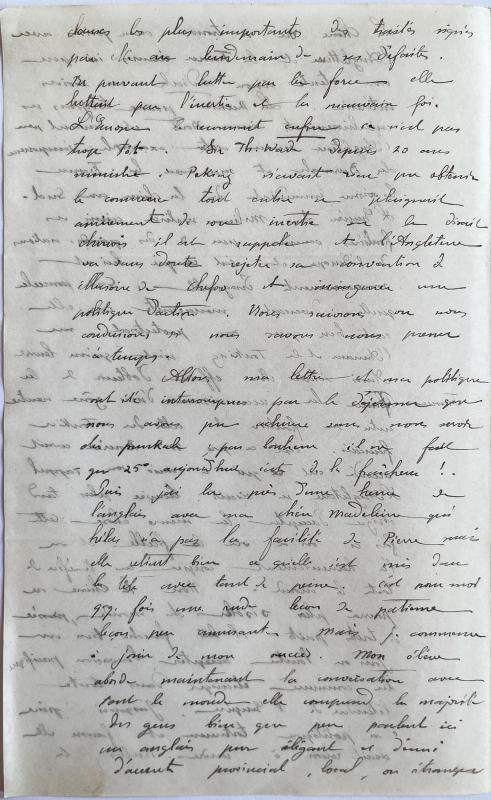 clauses les plus importants de traités signés
par elle au lendemain de ses défaites.
Ne pouvant lutter par la force elle
luttait par l'inertie et la mauvaise foi.
L'Europe le reconnait enfin ce n'est pas
trop tôt Sir Th. Wade depuis 20 ans
ministre à Peking n'avait rien pu obtenir
le commerce tout entier se plaignait
amèrement de son inertie on le disait
chinois il est rappelé et l'Angleterre
va sans doute rejeter sa convention
illusoire de Chefoo et inaugurer une
politique d'action. Nous suivrons ou nous
conduirons si nous savons nous y prendre
à temps.
Allons, ma lettre et ma politique
ont été interrompues par le déjeuner que
nous avons pu achever sans nos
punkah, par bonheur il ne fait
que 25° aujourd'hui c'est de la fraîcheur !..
Puis j'ai lu près d'une heure de
l'anglais avec ma chère Madeleine qui
hélas n'a pas la facilité de Pierre mais
elle retient bien ce qu'elle s'est mis dans
la tête avec tant de peine c'est pour moi
qqf fois une rude leçon de patience
leçon peu amusante. Mais je commence
à jouir de mon succès. Mon élève
aborde maintenant la conversation avec
tout le monde elle comprend la majorité
des gens bien que peu parlent ici
un anglais pur élégant et dénué
d'accents provincial, local, ou étranger